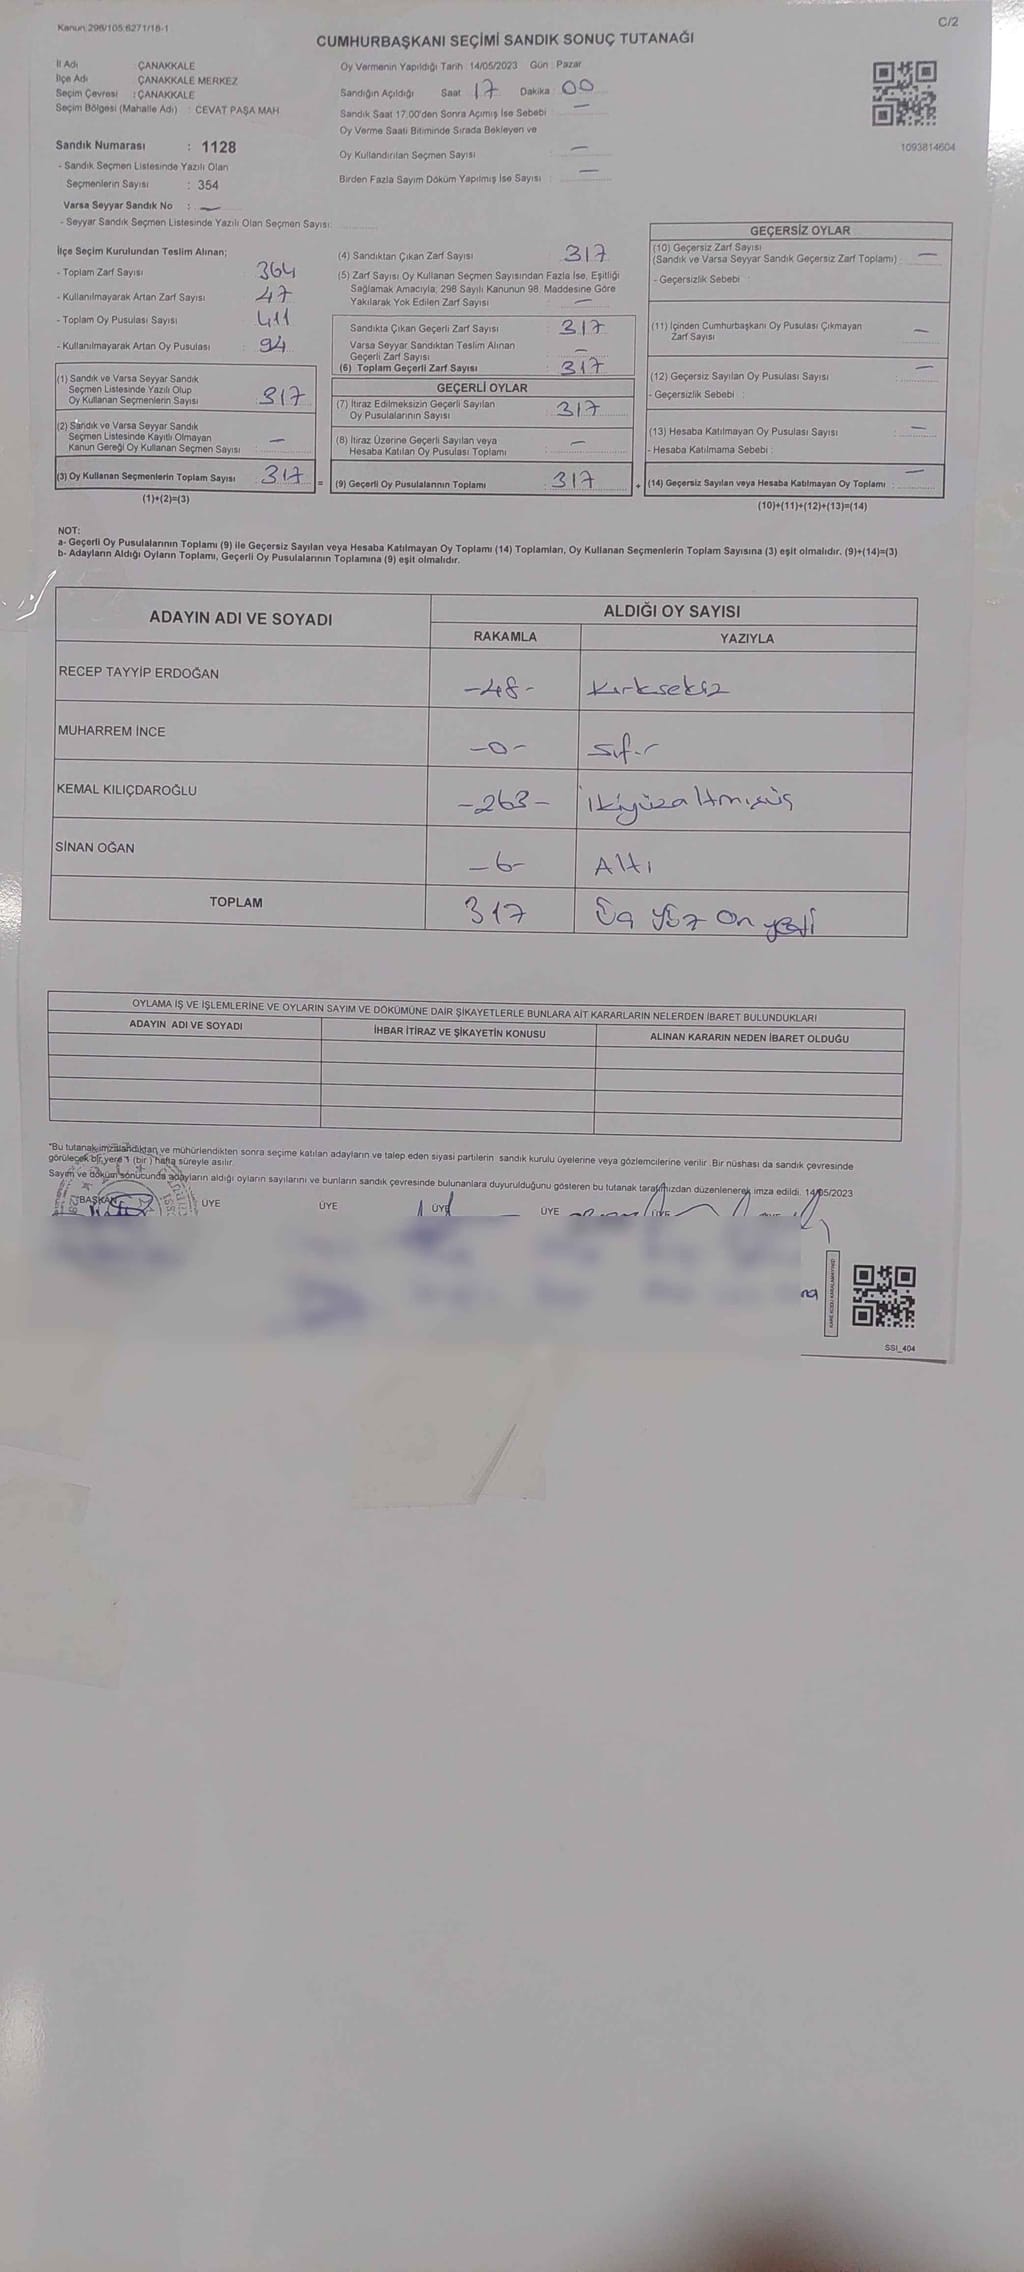 Kanun:298/105.6271/18-1
C/2
CUMHURBAŞKANI SEÇİMİ SANDIK SONUÇ TUTANAĞI
İl Adı : ÇANAKKALE
İlçe Adı : ÇANAKKALE MERKEZ
Seçim Çevresi : ÇANAKKALE
Seçim Bölgesi (Mahalle Adı) : CEVAT PAŞA MAH
Sandık Numarası : 1128
- Sandık Seçmen Listesinde Yazılı Olan
Seçmenlerin Sayısı : 354
Varsa Seyyar Sandık No : —
- Seyyar Sandık Seçmen Listesinde Yazılı Olan Seçmen Sayısı:
Oy Vermenin Yapıldığı Tarih 14/05/2023 Gün : Pazar
Sandığın Açıldığı Saat 17 Dakika : 00
Sandık Saat 17.00'den Sonra Açımış İse Sebebi : —
Oy Verme Saati Bitiminde Sırada Bekleyen ve
Oy Kullandırılan Seçmen Sayısı : —
Birden Fazla Sayım Döküm Yapılmış İse Sayısı : —
1093814604
İlçe Seçim Kurulundan Teslim Alınan;
- Toplam Zarf Sayısı : 364
- Kullanılmayarak Artan Zarf Sayısı : 47
- Toplam Oy Pusulası Sayısı : 411
- Kullanılmayarak Artan Oy Pusulası : 94
(1) Sandık ve Varsa Seyyar Sandık
Seçmen Listesinde Yazılı Olup
Oy Kullanan Seçmenlerin Sayısı : 317
(2) Sandık ve Varsa Seyyar Sandık
Seçmen Listesinde Kayıtlı Olmayan
Kanun Gereği Oy Kullanan Seçmen Sayısı : —
(3) Oy Kullanan Seçmenlerin Toplam Sayısı : 317
(1)+(2)=(3)
(4) Sandıktan Çıkan Zarf Sayısı : 317
(5) Zarf Sayısı Oy Kullanan Seçmen Sayısından Fazla İse, Eşitliği
Sağlamak Amacıyla, 298 Sayılı Kanunun 98. Maddesine Göre
Yakılarak Yok Edilen Zarf Sayısı : —
Sandıkta Çıkan Geçerli Zarf Sayısı : 317
Varsa Seyyar Sandıktan Teslim Alınan
Geçerli Zarf Sayısı : —
(6) Toplam Geçerli Zarf Sayısı : 317
GEÇERLİ OYLAR
(7) İtiraz Edilmeksizin Geçerli Sayılan
Oy Pusulalarının Sayısı : 317
(8) İtiraz Üzerine Geçerli Sayılan veya
Hesaba Katılan Oy Pusulası Toplamı : —
= (9) Geçerli Oy Pusulalarının Toplamı : 317 +
GEÇERSİZ OYLAR
(10) Geçersiz Zarf Sayısı
(Sandık ve Varsa Seyyar Sandık Geçersiz Zarf Toplamı) : —
- Geçersizlik Sebebi :
(11) İçinden Cumhurbaşkanı Oy Pusulası Çıkmayan
Zarf Sayısı : —
(12) Geçersiz Sayılan Oy Pusulası Sayısı : —
- Geçersizlik Sebebi :
(13) Hesaba Katılmayan Oy Pusulası Sayısı : —
- Hesaba Katılmama Sebebi :
(14) Geçersiz Sayılan veya Hesaba Katılmayan Oy Toplamı : —
(10)+(11)+(12)+(13)=(14)
NOT:
a- Geçerli Oy Pusulalarının Toplamı (9) ile Geçersiz Sayılan veya Hesaba Katılmayan Oy Toplamı (14) Toplamları, Oy Kullanan Seçmenlerin Toplam Sayısına (3) eşit olmalıdır. (9)+(14)=(3)
b- Adayların Aldığı Oyların Toplamı, Geçerli Oy Pusulalarının Toplamına (9) eşit olmalıdır.
ADAYIN ADI VE SOYADI ALDIĞI OY SAYISI
RAKAMLA YAZIYLA
RECEP TAYYİP ERDOĞAN -48- Kırksekiz
MUHARREM İNCE -0- Sıfır
KEMAL KILIÇDAROĞLU -263- İkiyüzaltmışüç
SİNAN OĞAN -6- Altı
TOPLAM 317 Üç yüz on yedi
OYLAMA İŞ VE İŞLEMLERİNE VE OYLARIN SAYIM VE DÖKÜMÜNE DAİR ŞİKAYETLERLE BUNLARA AİT KARARLARIN NELERDEN İBARET BULUNDUKLARI
ADAYIN ADI VE SOYADI İHBAR İTİRAZ VE ŞİKAYETİN KONUSU ALINAN KARARIN NEDEN İBARET OLDUĞU
*Bu tutanak imzalandıktan ve mühürlendikten sonra seçime katılan adayların ve talep eden siyasi partilerin sandık kurulu üyelerine veya gözlemcilerine verilir. Bir nüshası da sandık çevresinde
görülecek bir yere 1 (bir ) hafta süreyle asılır.
Sayım ve döküm sonucunda adayların aldığı oyların sayılarını ve bunların sandık çevresinde bulunanlara duyurulduğunu gösteren bu tutanak tarafımızdan düzenlenerek imza edildi. 14/05/2023
BAŞKAN ÜYE ÜYE ÜYE ÜYE ÜYE
KARE KODU KARALAMAYINIZ
SSI_404